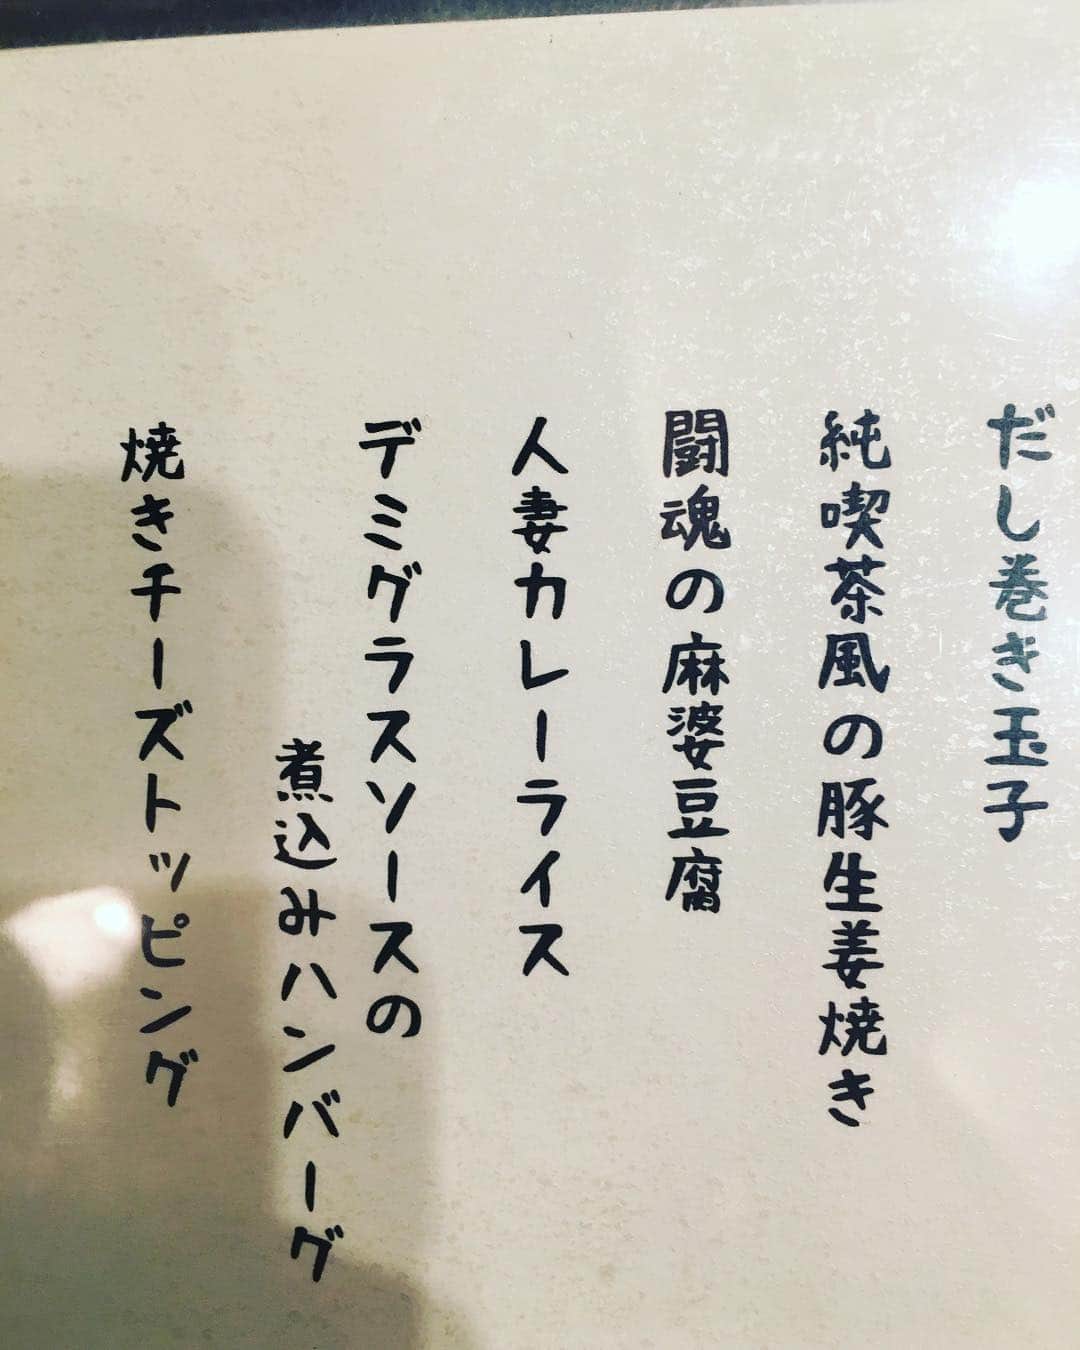 だし巻き玉子
純喫茶風の豚生姜焼き
闘魂の麻婆豆腐
人妻カレーライス
デミグラスソースの
煮込みハンバーグ
焼きチーズトッピング